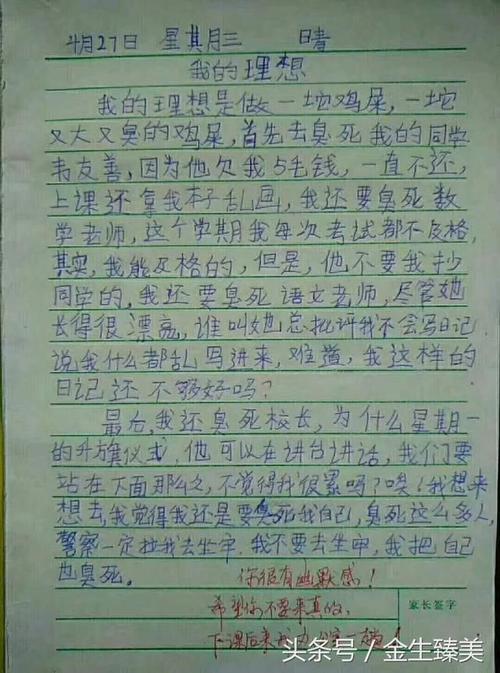 4月27日 星其月三 晴
我的理想
我的理想是做一坨鸡屎,一坨
又大又臭的鸡屎,首先去臭死我的同学
韦友善,因为他欠我5毛钱,一直不还,
上课还拿我本子乱画,我还要臭死数
学老师,这个学期我每次考试都不及格,
其实,我能及格的,但是,他不要我抄
同学的,我还要臭死语文老师,尽管她
长得很漂亮,谁叫她总批评我不会写日记
说我什么都乱写进来,难道,我这样的
日记还不够好吗?
最后,我还臭死校长,为什么星期一
的升旗仪式,他可以在讲台讲话,我们要
站在下面那么久,不觉得我很累吗?唉!我想来
想去,我觉得我还是要臭死我自己,臭死这么多人,
警察一定拉我去坐牢,我不要去坐牢,我把自己
也臭死。
你很有幽默感!
希望你不要来真的,
下课后来办公室一趟!
家长签字
头条号/金生臻美